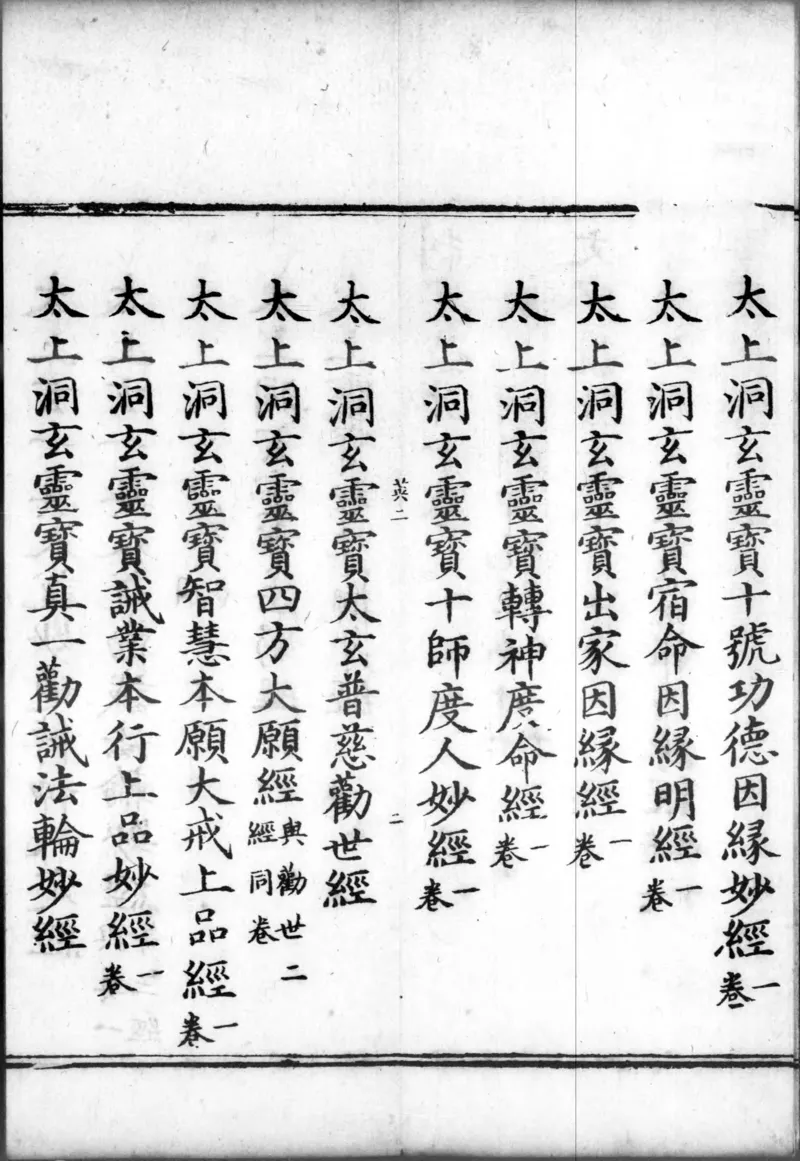 太上洞玄靈寶十號功德因緣妙經一卷
太上洞玄靈寶宿命因緣明經一卷
太上洞玄靈寶出家因緣經一卷
太上洞玄靈寶轉神度命經一卷
太上洞玄靈寶十師度人妙經一卷
英二
二
太上洞玄靈寶太玄普慈勸世經
太上洞玄靈寶四方大願經與勸世二經同卷
太上洞玄靈寶智慧本願大戒上品經一卷
太上洞玄靈寶誡業本行上品妙經一卷
太上洞玄靈寶真一勸誡法輪妙經